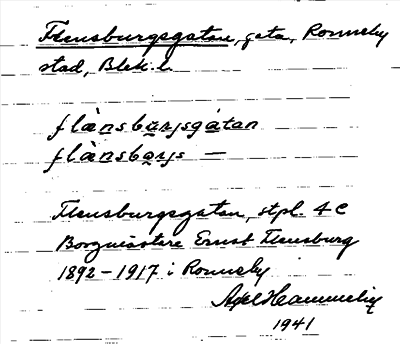 Flensburgsgatan, gata, Ronneby
stad, Blek. l.
flànsbärjsgàtan
flànsbärjs —
Flensburgsgatan, stpl. 4 C
Borgmästare Ernst Flensburg
1892-1917 i Ronneby
Axel Hammelig
1941